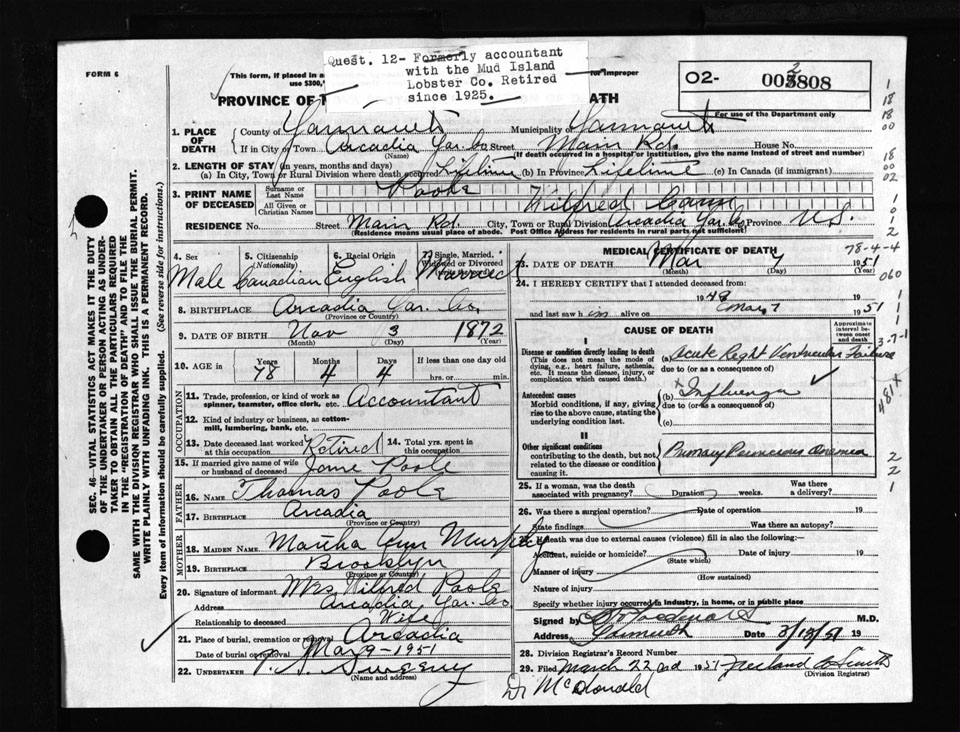 FORM 6
This form, if placed in a
use $300,
Quest. 12- Formerly accountant
with the Mud Island
Lobster Co. Retired
since 1925.
for improper
O2-
003808
2
For use of the Department only
PROVINCE OF
ATH
1. PLACE OF DEATH
County of Yarmouth Municipality of Yarmouth
If in City or Town Arcadia Yar. Co. Street Main Rd. House No.
(Name) (If death occurred in a hospital or institution, give the name instead of street and number)
2. LENGTH OF STAY (in years, months and days)
(a) In City, Town or Rural Division where death occurred Lifetime (b) In Province Lifetime (c) In Canada (if immigrant)
3. PRINT NAME OF DECEASED
Surname or Last Name Poole
All Given or Christian Names Wilfred
RESIDENCE No. Street Main Rd. City, Town or Rural Division Arcadia Yar. Co. Province N.S.
(Residence means usual place of abode. Post Office Address for residents in rural parts not sufficient)
4. Sex 5. Citizenship (Nationality) 6. Racial Origin 7. Single, Married, Widowed or Divorced
Male Canadian English Married
8. BIRTHPLACE Arcadia Yar. Co.
(Province or Country)
9. DATE OF BIRTH Nov 3 1872
(Month) (Day) (Year)
10. AGE in Years Months Days If less than one day old
78 4 4 hrs. or min.
OCCUPATION
11. Trade, profession, or kind of work as spinner, teamster, office clerk, etc. Accountant
12. Kind of industry or business, as cotton-mill, lumbering, bank, etc.
13. Date deceased last worked at this occupation Retired 14. Total yrs. spent in this occupation
15. If married give name of wife or husband of deceased Jane Poole
FATHER
16. NAME Thomas Poole
17. BIRTHPLACE Arcadia
(Province or Country)
MOTHER
18. MAIDEN NAME Martha Ann Murphy
19. BIRTHPLACE Brooklyn
(Province or Country)
20. Signature of informant Mrs Wilfred Poole
Address Arcadia Yar. Co.
Relationship to deceased Wife
21. Place of burial, cremation or removal Arcadia
Date of burial or removal Mar 9-1951
22. UNDERTAKER Sweeny
(Name and address)
MEDICAL CERTIFICATE OF DEATH
23. DATE OF DEATH Mar 7 1951
(Month) (Day) (Year)
78-4-4
24. I HEREBY CERTIFY that I attended deceased from:
1948 Mar 7 1951
and last saw him alive on 19
CAUSE OF DEATH
Approximate interval between onset and death
I
Disease or condition directly leading to death
(This does not mean the mode of dying, e.g., heart failure, asthenia, etc. It means the disease, injury, or complication which caused death.)
(a) Acute Right Ventricular Failure
due to (or as a consequence of)
Antecedent causes
Morbid conditions, if any, giving rise to the above cause, stating the underlying condition last.
(b) Influenza
due to (or as a consequence of)
(c)
II
Other significant conditions
contributing to the death, but not related to the disease or condition causing it.
Primary Pernicious anemia
3-7-1
481x
060
25. If a woman, was the death associated with pregnancy? Duration weeks. Was there a delivery?
26. Was there a surgical operation? Date of operation 19
State findings Was there an autopsy?
27. If death was due to external causes (violence) fill in also the following:—
Accident, suicide or homicide? Date of injury 19
(State which)
Manner of injury
(How sustained)
Nature of injury
Specify whether injury occurred in industry, in home, or in public place
Signed by M.D.
Address Yarmouth Date 3/13/51 19
28. Division Registrar's Record Number
29. Filed March 22nd 1951
(Division Registrar)
Dr McDonald
SEC. 46—VITAL STATISTICS ACT MAKES IT THE DUTY
OF THE UNDERTAKER OR PERSON ACTING AS UNDER-
TAKER TO OBTAIN ALL THE PARTICULARS REQUIRED
IN THE "REGISTRATION OF DEATH" AND TO FILE THE
SAME WITH THE DIVISION REGISTRAR WHO SHALL ISSUE THE BURIAL PERMIT.
WRITE PLAINLY WITH UNFADING INK. THIS IS A PERMANENT RECORD.
Every item of information should be carefully supplied. (See reverse side for instructions.)